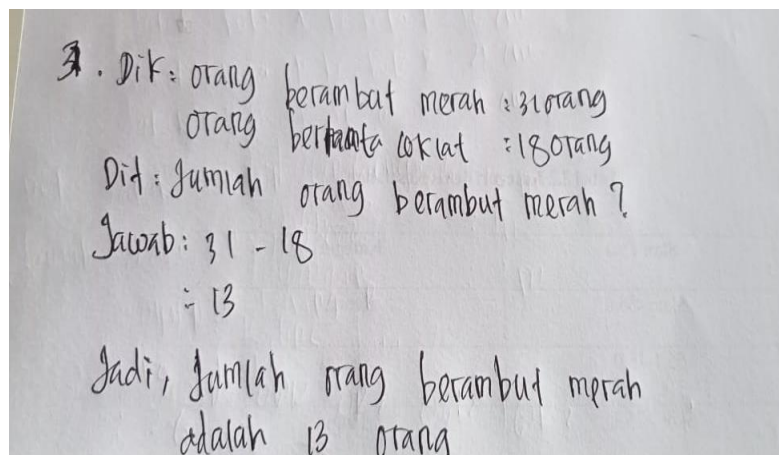 3. Dik: orang berambut merah : 31 orang
orang bermata coklat : 18 orang
Dit: Jumlah orang berambut merah?
Jawab: 31 - 18
= 13
Jadi, Jumlah orang berambut merah
adalah 13 orang